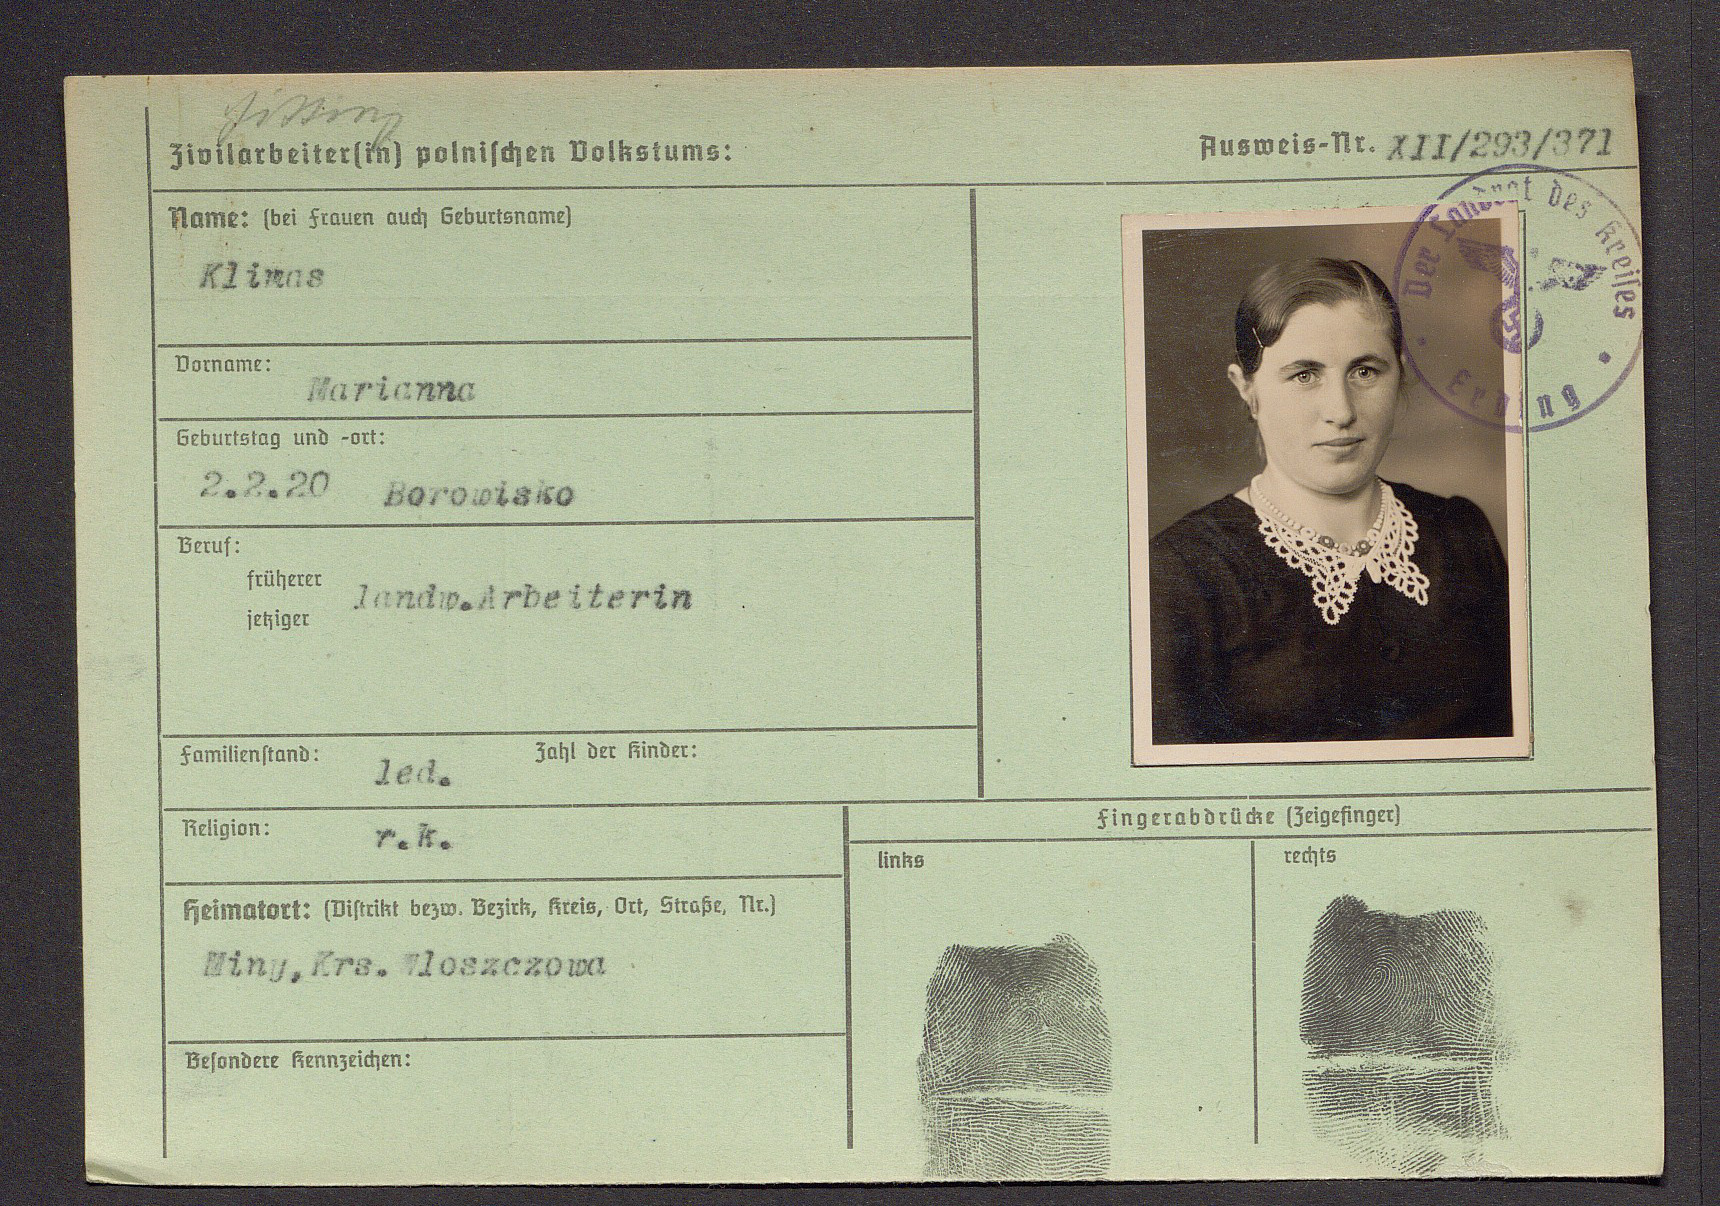 Zivilarbeiter(in) polnischen Volkstums:
Ausweis-Nr. XII/293/371
Name: (bei Frauen auch Geburtsname)
Klimas
Vorname:
Marianna
Geburtstag und -ort:
2.2.20 Borowisko
Beruf:
früherer
landw.Arbeiterin
jetziger
Familienstand: led. Zahl der Kinder:
Religion: r.k.
Heimatort: (Distrikt bezw. Bezirk, Kreis, Ort, Straße, Nr.)
Miny,Krs. Wloszczowa
Besondere Kennzeichen:
Der Landrat des Kreises
Erding
Fingerabdrücke (Zeigefinger)
links
rechts